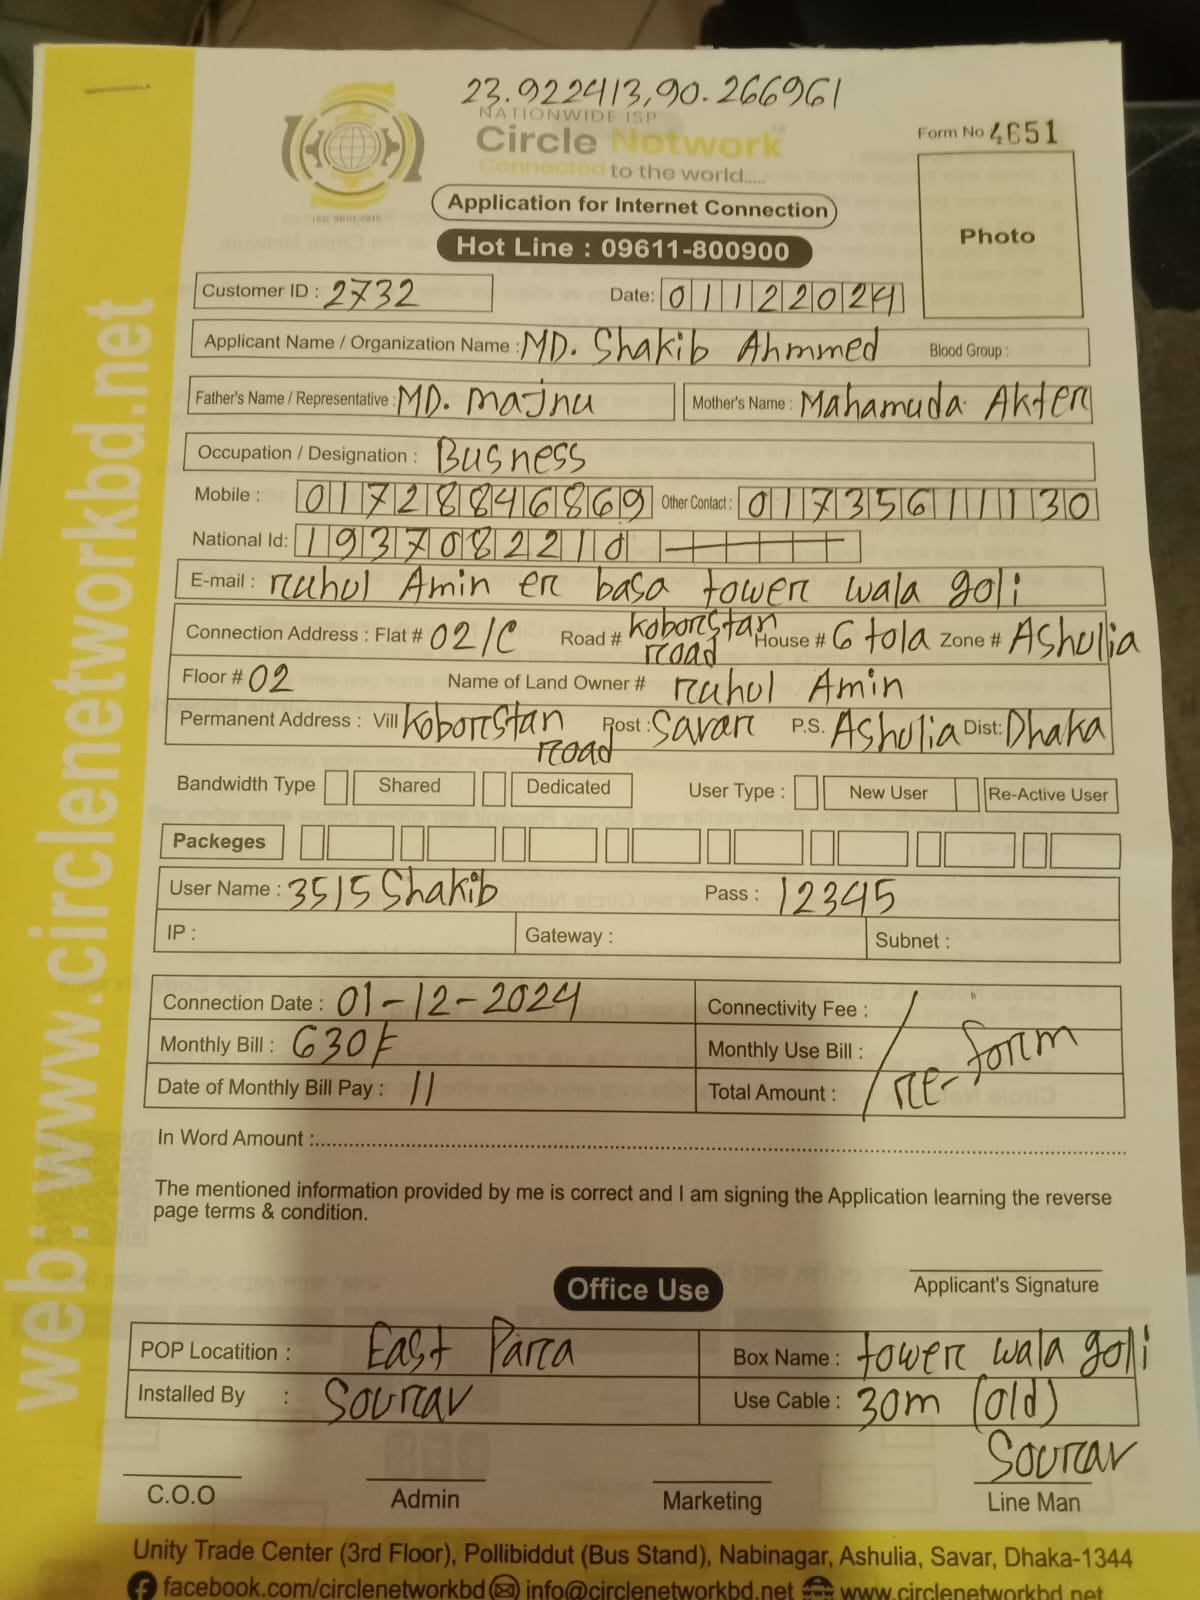 23.922413,90.266961
NATIONWIDE ISP
Circle Network
Connected to the world.....
Form No 4651
ISO 9001:2015
Application for Internet Connection
Photo
Hot Line : 09611-800900
Customer ID : 2732 Date: 01122024
Applicant Name / Organization Name : MD. Shakib Ahmmed Blood Group :
Father's Name / Representative : MD. majnu Mother's Name : Mahamuda Akter
Occupation / Designation : Busness
Mobile : 01728846869 Other Contact : 01735611130
National Id: 1937082210
E-mail : ruhul Amin er basa tower wala goli
Connection Address : Flat # 02/C Road # koborstan road House # 6 tola Zone # Ashulia
Floor # 02 Name of Land Owner # ruhul Amin
Permanent Address : Vill koborstan road Post : Savar P.S. Ashulia Dist: Dhaka
Bandwidth Type Shared Dedicated User Type : New User Re-Active User
Packeges
User Name : 3515Shakib Pass : 12345
IP : Gateway : Subnet :
Connection Date : 01-12-2024 Connectivity Fee :
Monthly Bill : 630/- Monthly Use Bill :
Date of Monthly Bill Pay : 11 Total Amount : re-form
In Word Amount :
The mentioned information provided by me is correct and I am signing the Application learning the reverse
page terms & condition.
Applicant's Signature
Office Use
POP Locatition : East Para Box Name : tower wala goli
Installed By : Sourav Use Cable : 30m (old)
Sourav
C.O.O Admin Marketing Line Man
Unity Trade Center (3rd Floor), Pollibiddut (Bus Stand), Nabinagar, Ashulia, Savar, Dhaka-1344
facebook.com/circlenetworkbd info@circlenetworkbd.net www.circlenetworkbd.net
web: www.circlenetworkbd.net